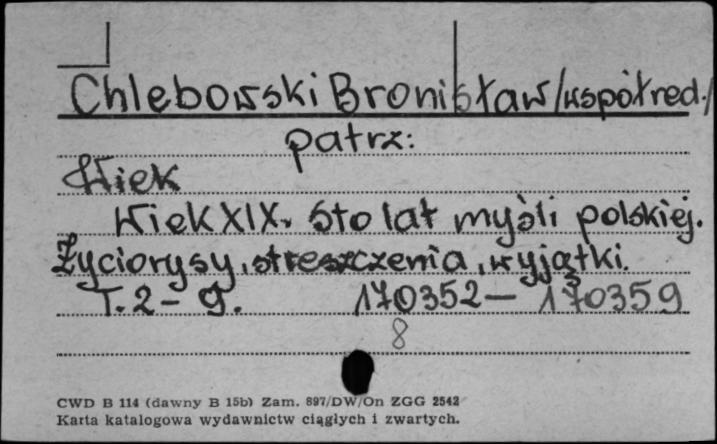 Chlebowski Bronisław/współred./
patrz:
Wiek
Wiek XIX. Sto lat myśli polskiej.
Życiorysy, streszczenia, wyjątki.
T. 2 - 9. 170352 - 170359
8
CWD B 114 (dawny B 15b) Zam. 897/DW/On ZGG 2542
Karta katalogowa wydawnictw ciągłych i zwartych.